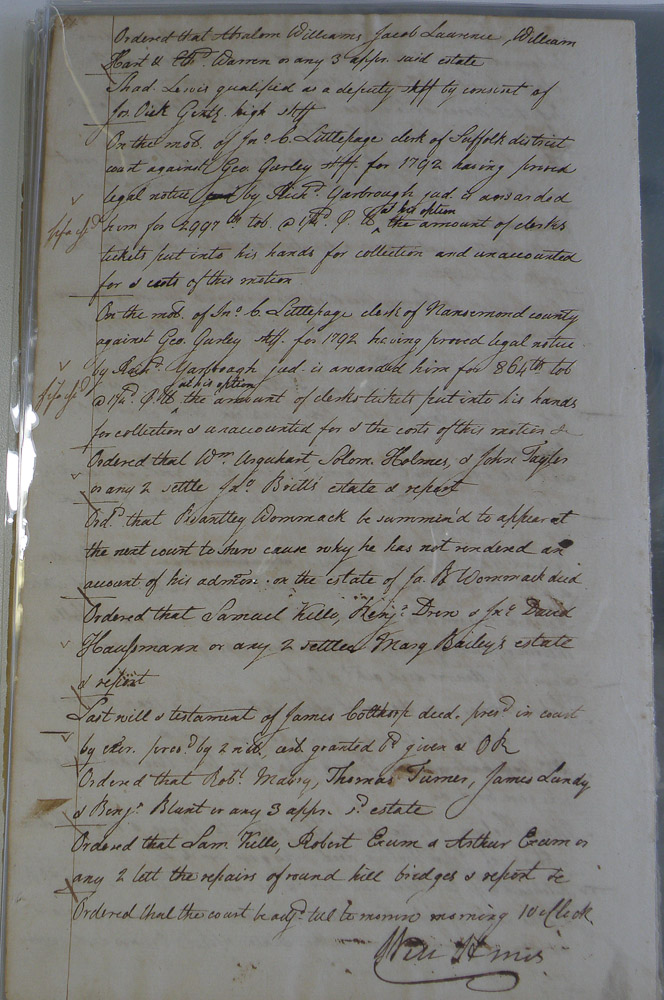 Ordered that Absalom Williams, Jacob Laurence, William
Hart & Etd. Warren or any 3 appr. said estate
Shad. Lewis qualified as a deputy shff by consent of
Jos. Dick Gentn. high shff
On the mod. of Jno. C. Littlepage clerk of Suffolk district
court against Geo. Gurley shff. for 1792 having proved
legal notice by Richd. Yarbrough jud. is awarded
him for 2997 lb tob. @ 17/. P. Ct at his option the amount of clerks
tickets put into his hands for collection and unaccounted
for & costs of this motion
On the mod. of Jno. C. Littlepage clerk of Nansemond county
against Geo. Gurley shff. for 1792 having proved legal notice
by Richd. Yarbrough jud. is awarded him for 864 lb tob
@ 17/. P. Ct at his option the amount of clerks tickets put into his hands
for collection & unaccounted for & the costs of this motion &
Ordered that Wm. Urquhart, Solom. Holmes, & John Taylor
or any 2 settle Jno. Britt's estate & report
Ord. that Brantley Wommack be summin'd to appear at
the next court to shew cause why he has not rendered an
account of his admon. on the estate of Ja. B Wommack deed
Ordered that Samuel Kello, Benj. Drew & Jno. David
Haussmann or any 2 settle Mary Bailey's estate
& report
Last will & testament of James Colthorp deed. presd. in court
by exor. provd. by 2 wit, cert. granted bd given & OR
Ordered that Robt. Maury, Thomas Turner, James Lundy
& Benjn. Blunt or any 3 appr. sd. estate
Ordered that Sam. Kello, Robert Exum & Arthur Exum or
any 2 lett the repairs of round hill bridges & report &c
Ordered that the court be adjd. till to morrow morning 10 oClock